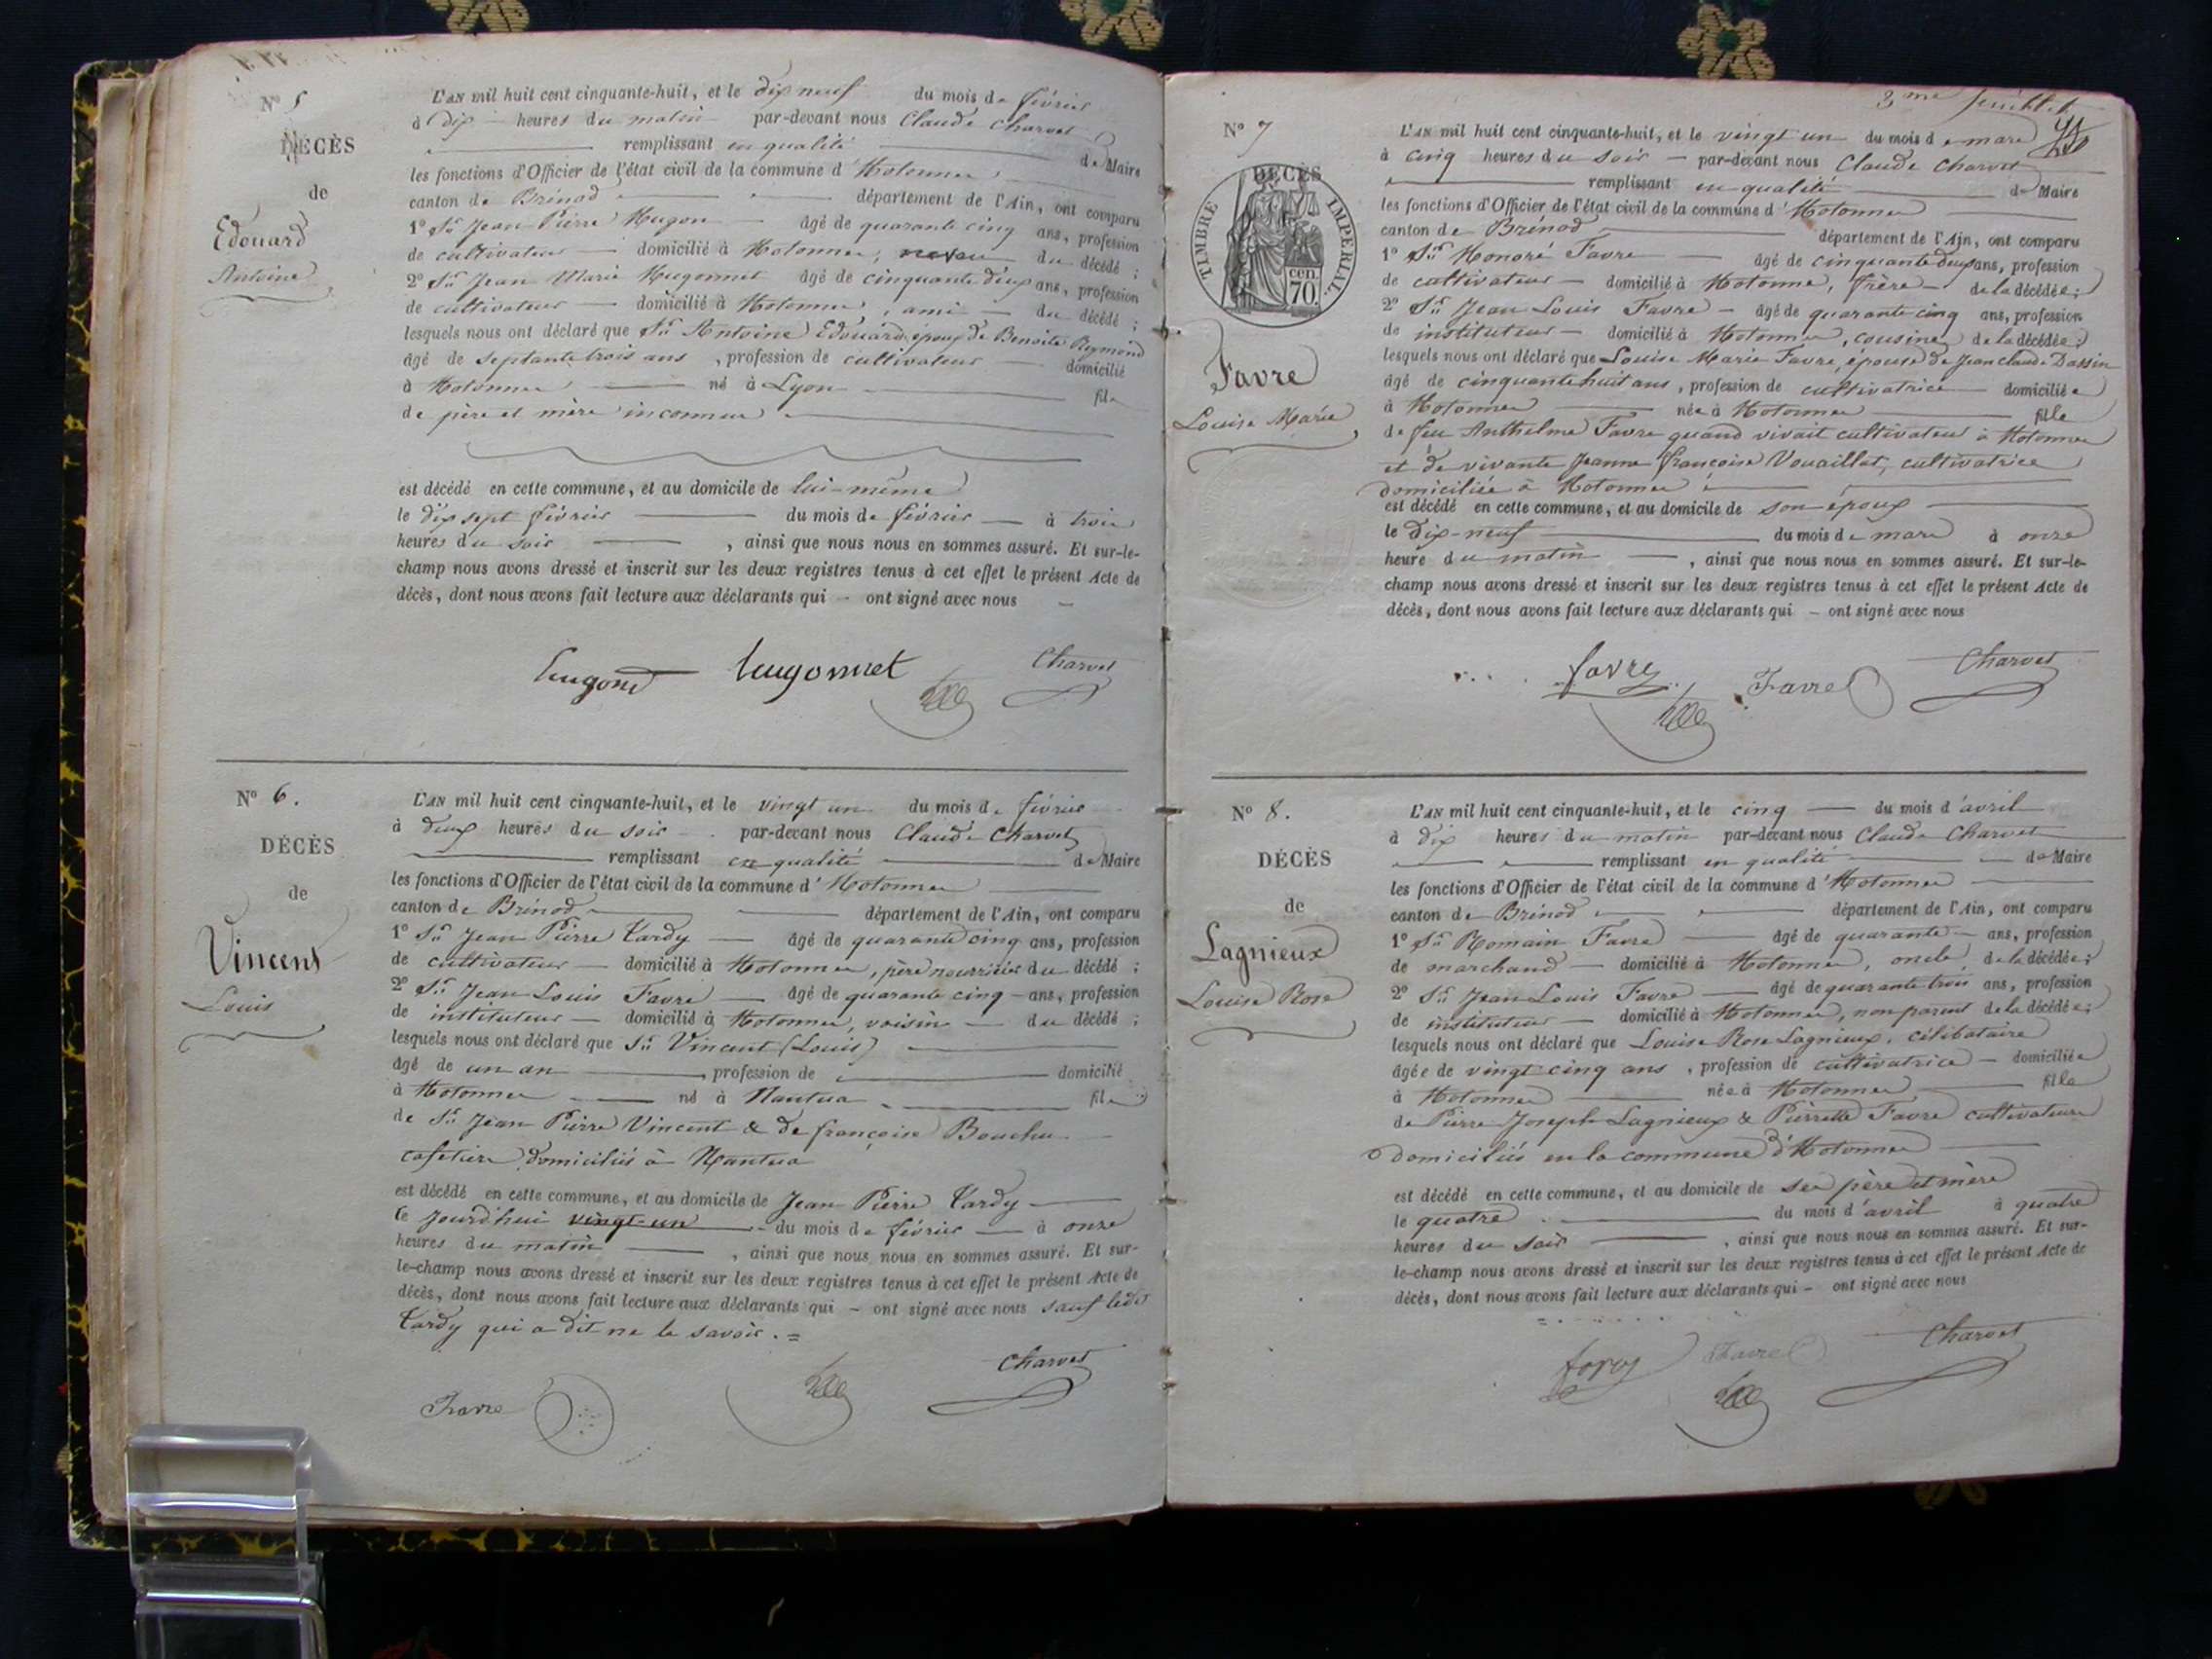 N° 5
DÉCÈS
de
Edouard
Antoine
L'AN mil huit cent cinquante-huit, et le dix neuf du mois de février
à dix heures du matin par-devant nous Claude Charvet
remplissant en qualité de Maire
les fonctions d'Officier de l'état civil de la commune d'Hotonnes
canton de Brénod département de l'Ain, ont comparu
1° Sr. Jean Pierre Hugon âgé de quarante cinq ans, profession
de cultivateur domicilié à Hotonnes, du décédé ;
2° Sr. Jean Marie Hugonnet âgé de cinquante deux ans, profession
de cultivateur domicilié à Hotonnes, ami du décédé ;
lesquels nous ont déclaré que Sr. Antoine Edouard époux de Benoite Reymond
âgé de septante trois ans, profession de cultivateur domicilié
à Hotonnes né à Lyon fils
de père et mère inconnus
est décédé en cette commune, et au domicile de lui-même
le dix sept février du mois de février à trois
heures du soir, ainsi que nous nous en sommes assuré. Et sur-le-
champ nous avons dressé et inscrit sur les deux registres tenus à cet effet le présent Acte de
décès, dont nous avons fait lecture aux déclarants qui ont signé avec nous
hugond hugonnet Charvet
N° 6.
DÉCÈS
de
Vincent
Louis
L'AN mil huit cent cinquante-huit, et le vingt un du mois de février
à deux heures du soir par-devant nous Claude Charvet
remplissant en qualité de Maire
les fonctions d'Officier de l'état civil de la commune d'Hotonnes
canton de Brénod département de l'Ain, ont comparu
1° Sr. Jean Pierre Tardy âgé de quarante cinq ans, profession
de cultivateur domicilié à Hotonnes, père nourricier du décédé ;
2° Sr. Jean Louis Favre âgé de quarante cinq ans, profession
de instituteur domicilié à Hotonnes, voisin du décédé ;
lesquels nous ont déclaré que Sr. Vincent (Louis)
âgé de un an, profession de domicilié
à Hotonnes né à Nantua fils
de Sr. Jean Pierre Vincent & de françoise Bouchu
cafetiers domiciliés à Nantua
est décédé en cette commune, et au domicile de Jean Pierre Tardy
le jourd'hui vingt-un du mois de février à onze
heures du matin, ainsi que nous nous en sommes assuré. Et sur-
le-champ nous avons dressé et inscrit sur les deux registres tenus à cet effet le présent Acte de
décès, dont nous avons fait lecture aux déclarants qui ont signé avec nous sauf ledit
Tardy qui a dit ne le savoir. =
Favre Charvet
3me feuillet
N° 7
DÉCÈS
TIMBRE IMPÉRIAL
cen.
70.
Favre
Louise Marie
L'AN mil huit cent cinquante-huit, et le vingt un du mois de mars
à cinq heures du soir par-devant nous Claude Charvet
remplissant en qualité de Maire
les fonctions d'Officier de l'état civil de la commune d'Hotonnes
canton de Brénod département de l'Ain, ont comparu
1° Sr. Honoré Favre âgé de cinquante deux ans, profession
de cultivateur domicilié à Hotonne, frère de la décédée ;
2° Sr. Jean Louis Favre âgé de quarante cinq ans, profession
de instituteur domicilié à Hotonnes, cousin de la décédée ;
lesquels nous ont déclaré que Louise Marie Favre, épouse de Jean Claude Dassin
âgé de cinquante huit ans, profession de cultivatrice domiciliée
à Hotonnes née à Hotonnes fille
de feu Anthelme Favre quand vivait cultivateur à Hotonnes
et de vivante Jeanne françoise Vouaillat, cultivatrice
domiciliée à Hotonnes
est décédé en cette commune, et au domicile de son époux
le dix-neuf du mois de mars à onze
heure du matin, ainsi que nous nous en sommes assuré. Et sur-le-
champ nous avons dressé et inscrit sur les deux registres tenus à cet effet le présent Acte de
décès, dont nous avons fait lecture aux déclarants qui ont signé avec nous
favre Favre Charvet
N° 8.
DÉCÈS
de
Lagnieux
Louise Rose
L'AN mil huit cent cinquante-huit, et le cinq du mois d'avril
à dix heures du matin par-devant nous Claude Charvet
remplissant en qualité de Maire
les fonctions d'Officier de l'état civil de la commune d'Hotonnes
canton de Brénod département de l'Ain, ont comparu
1° Sr. Romain Favre âgé de quarante ans, profession
de marchand domicilié à Hotonnes, oncle de la décédée ;
2° Sr. Jean Louis Favre âgé de quarante trois ans, profession
de instituteur domicilié à Hotonnes, non parent de la décédée ;
lesquels nous ont déclaré que Louise Rose Lagnieux, célibataire
âgée de vingt cinq ans, profession de cultivatrice domiciliée
à Hotonnes née à Hotonnes fille
de Pierre Joseph Lagnieux & Pierrette Favre cultivateurs
domiciliés en la commune d'Hotonnes
est décédé en cette commune, et au domicile de ses père et mère
le quatre du mois d'avril à quatre
heures du soir, ainsi que nous nous en sommes assuré. Et sur-
le-champ nous avons dressé et inscrit sur les deux registres tenus à cet effet le présent Acte de
décès, dont nous avons fait lecture aux déclarants qui ont signé avec nous
Favre Charvet